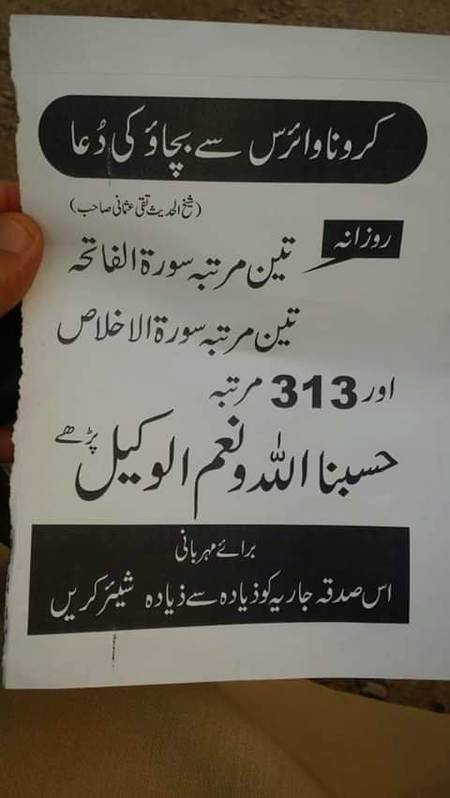 کرونا وائرس سے بچاؤ کی دُعا
(شیخ الحدیث تقی عثمانی صاحب)
روزانہ
تین مرتبہ سورۃ الفاتحہ
تین مرتبہ سورۃ الاخلاص
اور 313 مرتبہ
حسبنا اللہ ونعم الوکیل پڑھے
برائے مہربانی
اس صدقہ جاریہ کو ذیادہ سے ذیادہ شیئر کریں